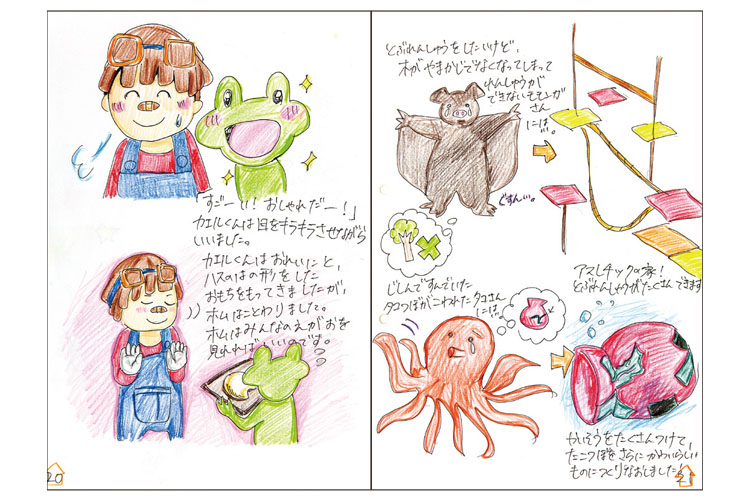 「すごーい！おしゃれだー！」
カエルくんは目をキラキラさせながら
いいました。
カエルくんはおれいにと、
ハスのはの形をした
おもちをもってきましたが、
ホムはことわりました。
ホムはみんなのえがおを
見れればいいのです。
20
とぶれんしゅうをしたいけど、
木がやまかじでなくなってしまって
れんしゅうが
できないモモンガ
さん
には…。
ぐすん…。
アスレチックの家！
とぶれんしゅうがたくさんできます
じしんですんでいた
タコつぼがこわれたタコさん
には。
かいそうをたくさんつけて、
たこつぼをさらにかわいらしい
ものにつくりなおしました！
21